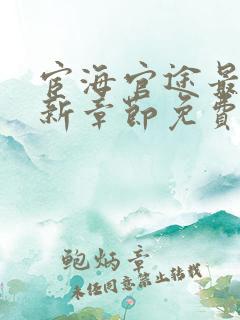 宦海官途最
新章節免費
鲍炳章
未经同意禁止转载